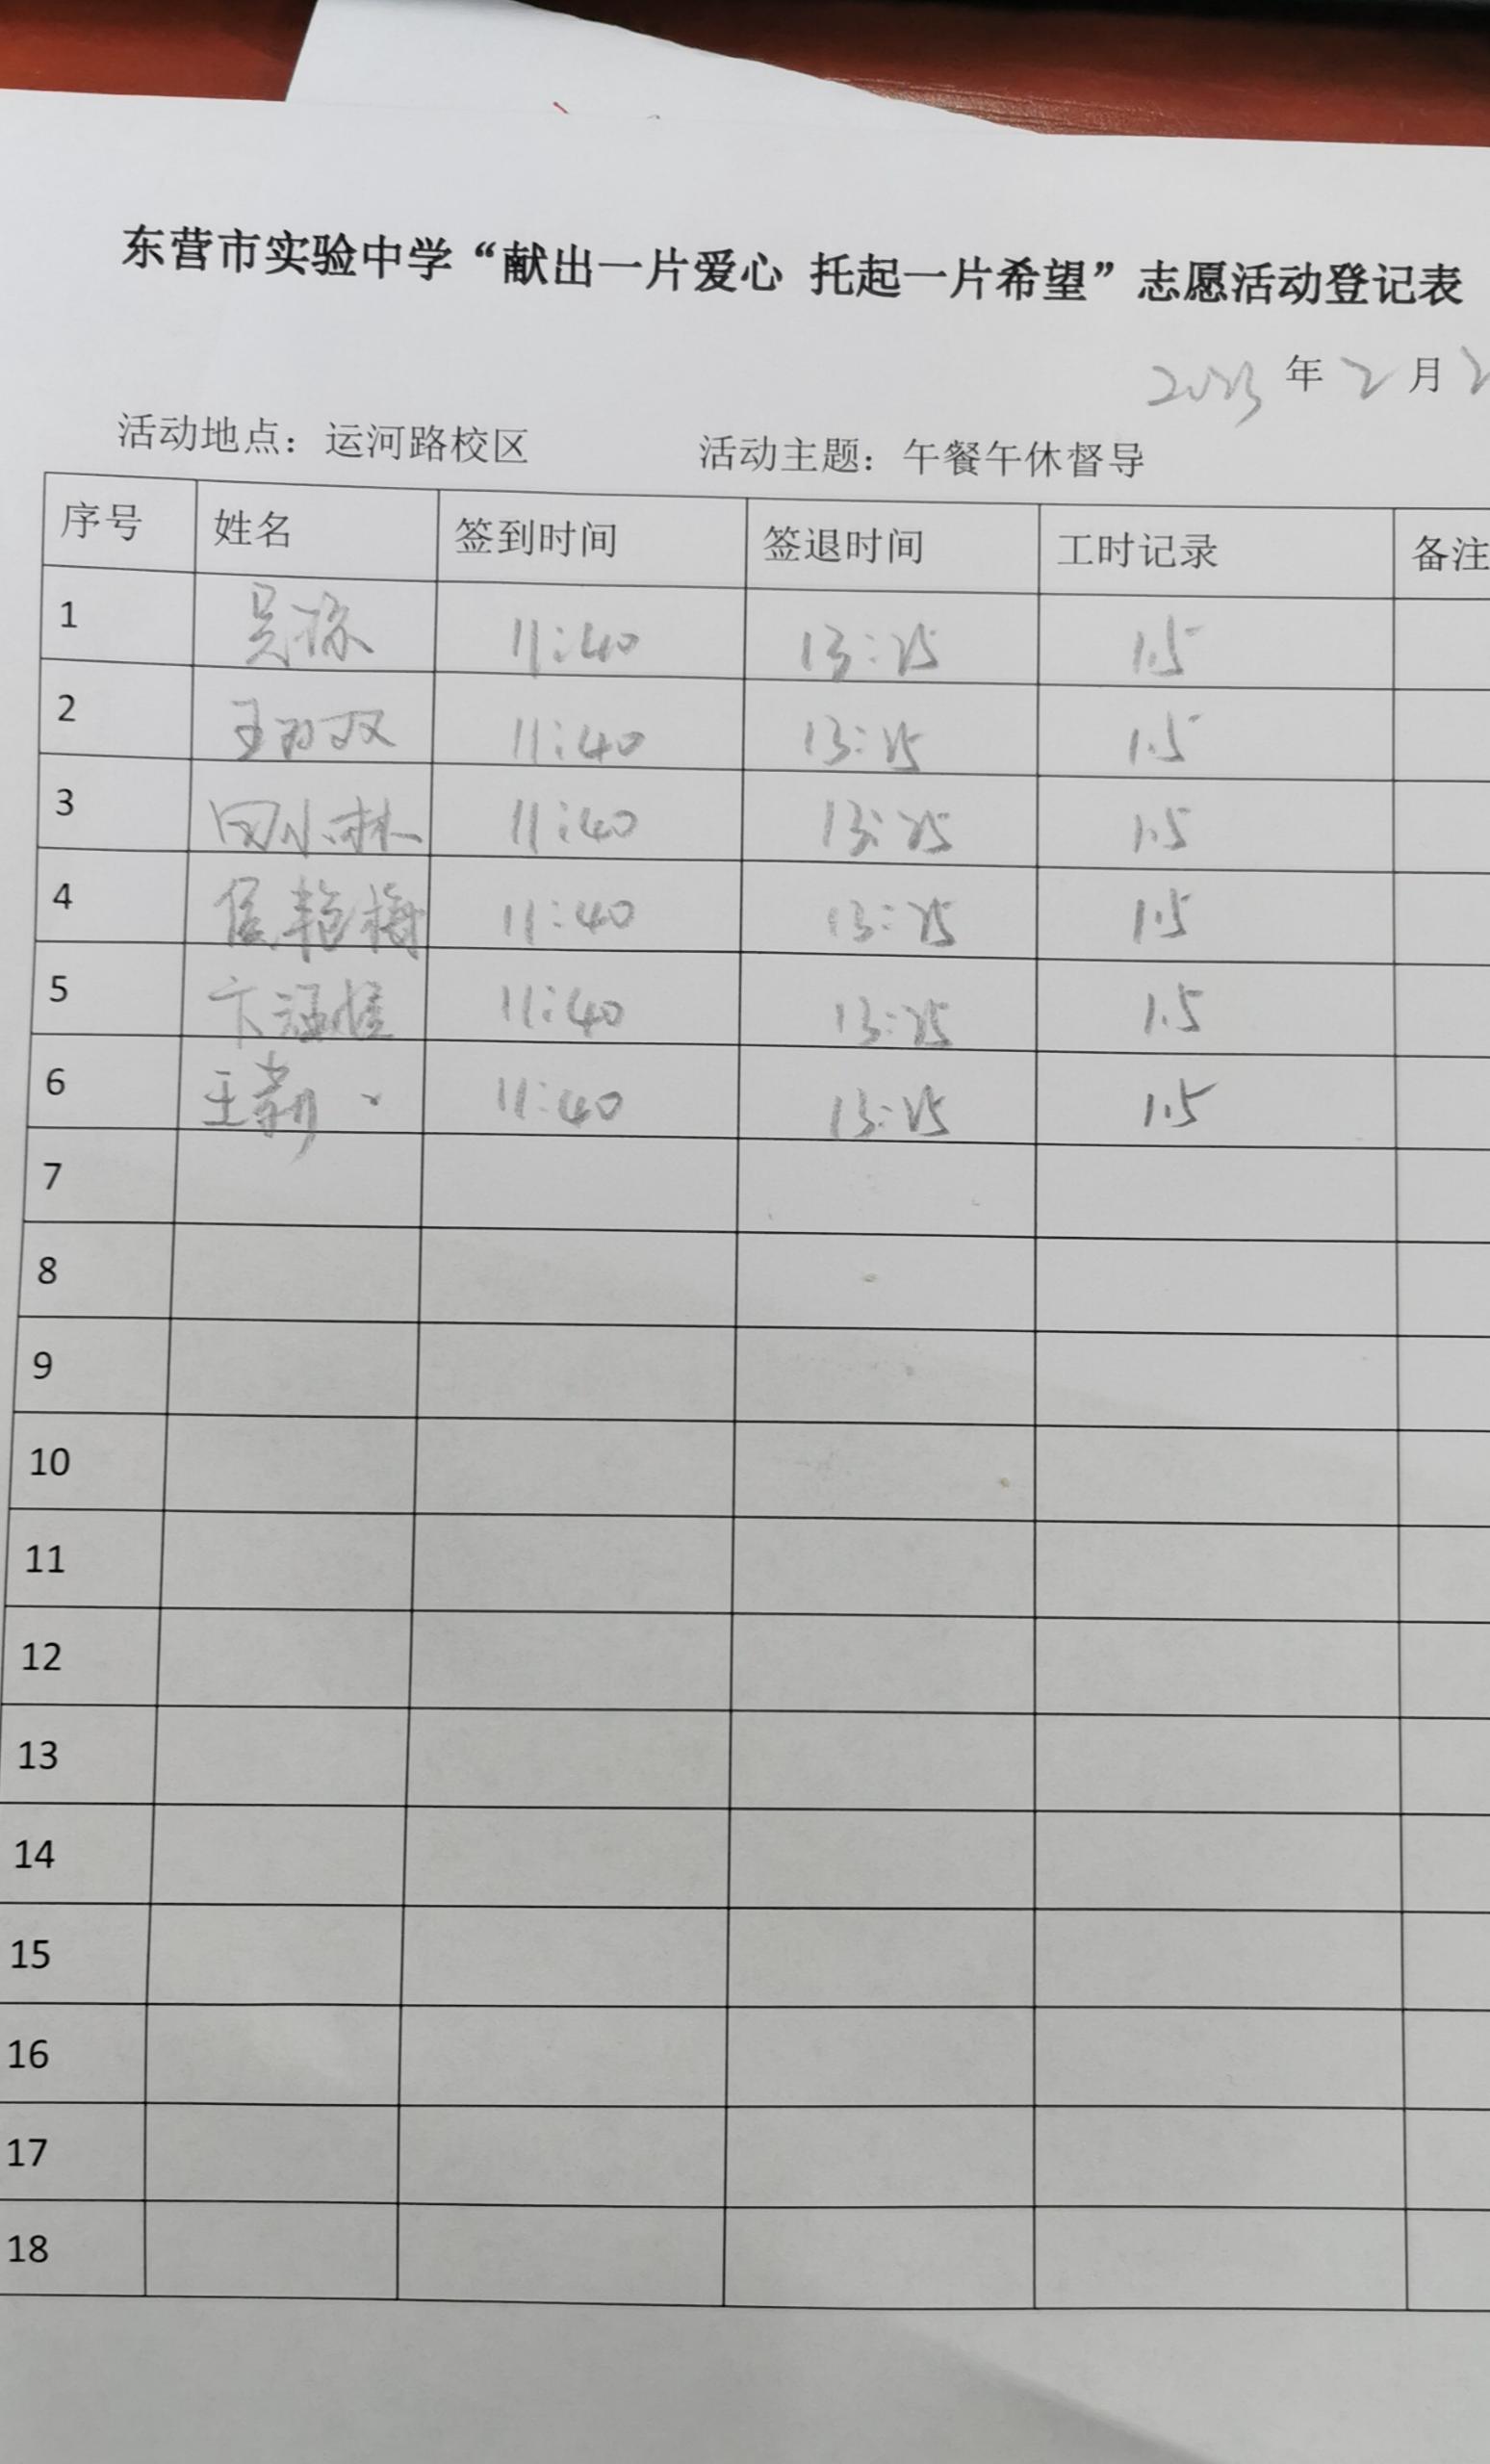 东营市实验中学“献出一片爱心 托起一片希望”志愿活动登记表
2023 年 2 月 2
活动地点：运河路校区 活动主题：午餐午休督导
序号 姓名 签到时间 签退时间 工时记录 备注
1 11:40 13:25 1.5
2 11:40 13:25 1.5
3 田小林 11:40 13:25 1.5
4 侯艳梅 11:40 13:25 1.5
5 11:40 13:25 1.5
6 11:40 13:25 1.5
7
8
9
10
11
12
13
14
15
16
17
18